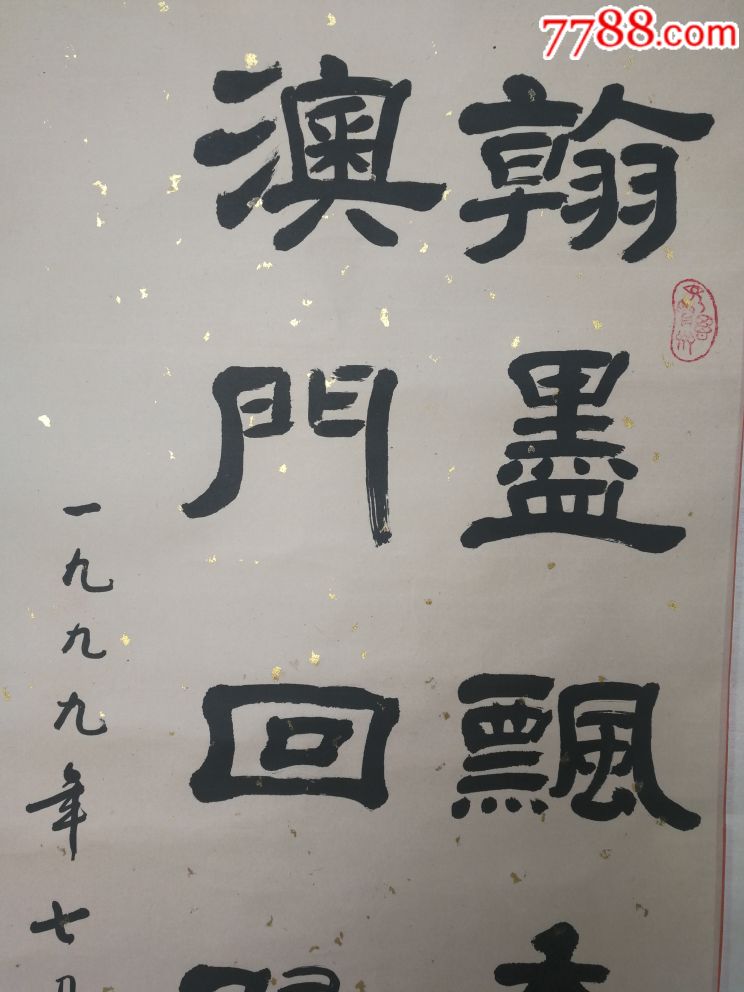 7788.com
翰墨飄
澳門回
一九九九年七